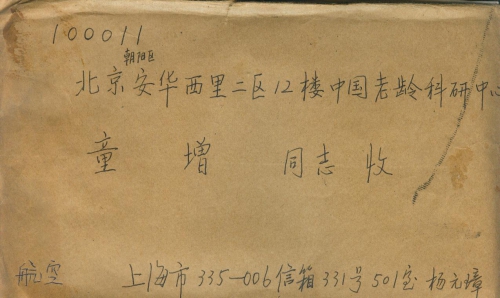 100011
朝阳区
北京安华西里二区12楼中国老龄科研中心
童增 同志 收
航空 上海市335-006信箱331号501室 杨元璋